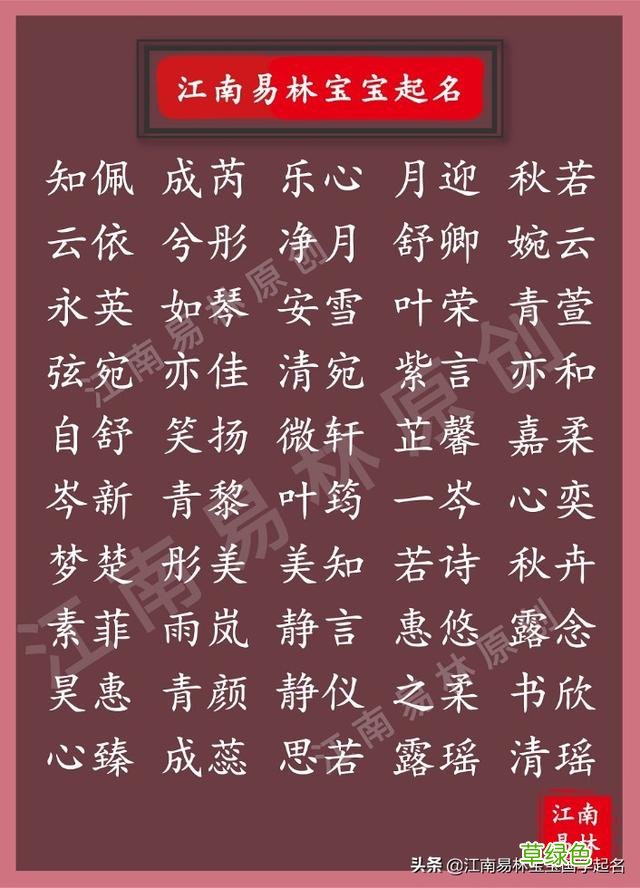 江南易林宝宝起名
知佩 成芮 乐心 月迎 秋若
云依 兮彤 净月 舒卿 婉云
永英 如琴 安雪 叶荣 青萱
弦宛 亦佳 清宛 紫言 亦和
自舒 笑扬 微轩 芷馨 嘉柔
岑新 青黎 叶筠 一岑 心奕
梦楚 彤美 美知 若诗 秋卉
素菲 雨岚 静言 惠悠 露念
昊惠 青颜 静仪 之柔 书欣
心臻 成蕊 思若 露瑶 清瑶
江南易林原创
江南易林原创
江南易林原创
江南
易林
草绿色
头条 @江南易林宝宝国学起名